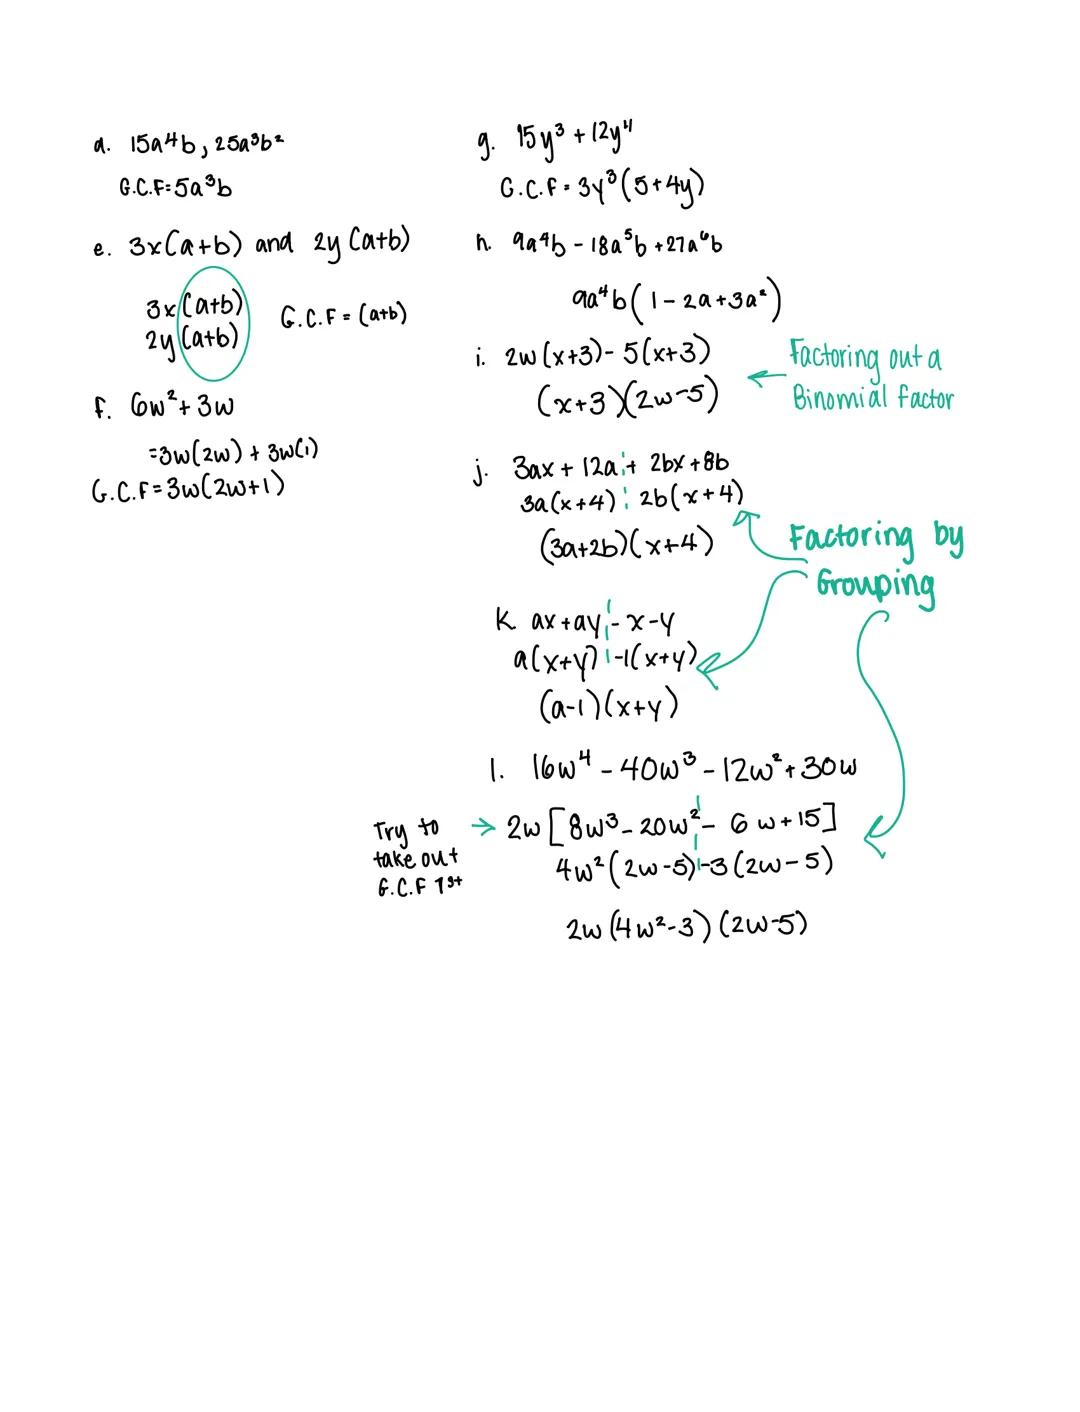 d. 15a⁴b, 25a³b²
G.C.F=5a³b
e. 3x(a+b) and 2y (a+b)
3x(a+b)
2y(a+b)
G.C.F = (a+b)
f. 6w²+3w
=3w(2w) + 3w(1)
G.C.F=3w(2w+1)
g. 15y³ + 12y⁴
G.C.F = 3y³(5+4y)
h. 9a⁴b - 18a⁵b + 27a⁶b
9a⁴b(1-2a+3a²)
i. 2w(x+3)-5(x+3)
(x+3)(2w-5)
Factoring out a
Binomial factor
j. 3ax + 12a + 2bx + 8b
3a(x+4) 2b(x+4)
(3a+2b)(x+4)
Factoring by
Grouping
K. ax+ay - x-y
a(x+y) -1(x+y)
(a-1)(x+y)
l. 16w⁴ - 40w³ - 12w² + 30w
Try to
take out
G.C.F 1st
2w[8w³ - 20w² - 6w+15]
4w²(2w-5) -3(2w-5)
2w(4w²-3)(2w-5)